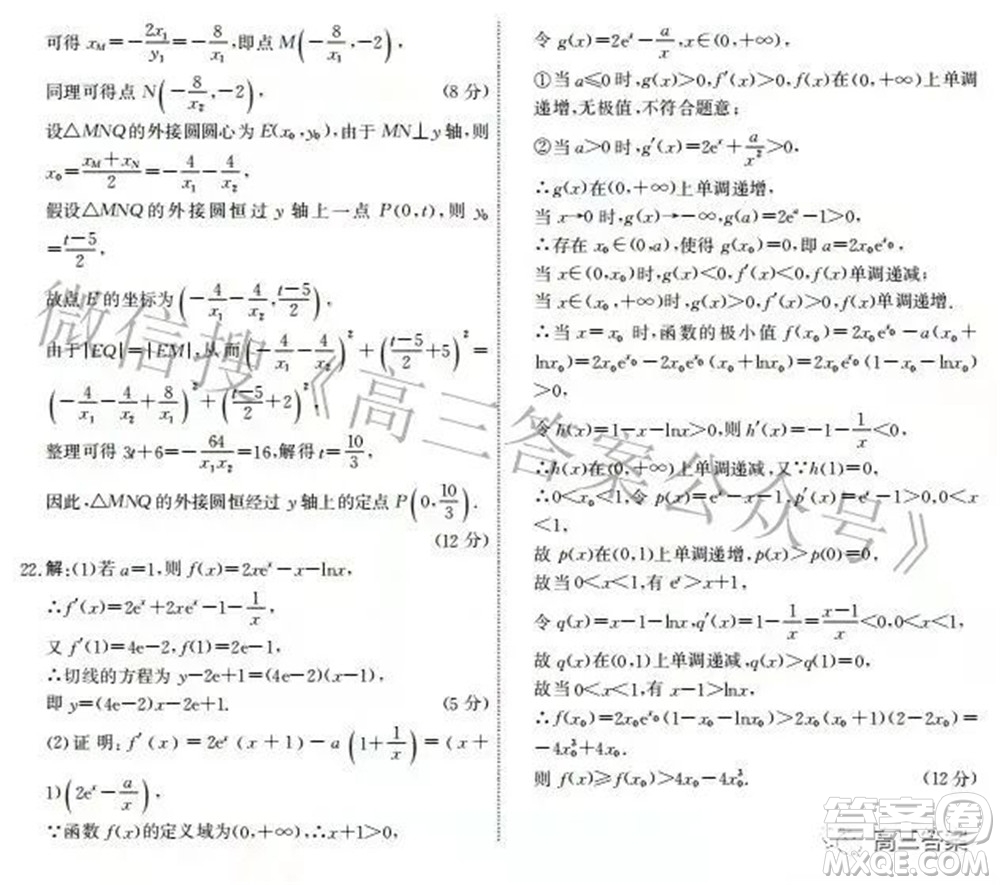 可得 x_M=-2x₁/y₁=-8/x₁,即点 M(-8/x₁,-2),
同理可得点 N(-8/x₂,-2), (8 分)
设△MNQ的外接圆圆心为 E(x₀,y₀),由于 MN⊥y 轴,则
x₀=(x_M+x_N)/2=-4/x₁-4/x₂.
假设△MNQ 的外接圆恒过 y 轴上一点 P(0,t),则 y₀
=(t-5)/2,
故点 E 的坐标为(-4/x₁-4/x₂,(t-5)/2),
由于|EQ|=|EM|,从而(-4/x₁-4/x₂)²+((t-5)/2+5)²=
(-4/x₁-4/x₂+8/x₁)²+((t-5)/2+2)²,
整理可得 3t+6=-64/(x₁x₂)=16,解得 t=10/3,
因此,△MNQ的外接圆恒经过 y 轴上的定点 P(0,10/3).
(12 分)
22.解:(1)若 a=1,则 f(x)=2xeˣ-x-lnx,
∴f′(x)=2eˣ+2xeˣ-1-1/x,
又 f′(1)=4e-2,f(1)=2e-1,
∴切线的方程为 y-2e+1=(4e-2)(x-1),
即 y=(4e-2)x-2e+1. (5 分)
(2)证明:f′(x)=2eˣ(x+1)-a(1+1/x)=(x+
1)(2eˣ-a/x),
∵函数 f(x)的定义域为(0,+∞),∴x+1>0,
令 g(x)=2eˣ-a/x,x∈(0,+∞),
①当 a≤0 时,g(x)>0,f′(x)>0,f(x)在(0,+∞)上单调
递增,无极值,不符合题意;
②当 a>0 时,g′(x)=2eˣ+a/x²>0,
∴g(x)在(0,+∞)上单调递增,
当 x→0 时,g(x)→-∞,g(a)=2eᵃ-1>0,
∴存在 x₀∈(0,a),使得 g(x₀)=0,即 a=2x₀e^x₀,
当 x∈(0,x₀)时,g(x)<0,f′(x)<0,f(x)单调递减;
当 x∈(x₀,+∞)时,g(x)>0,f′(x)>0,f(x)单调递增.
∴当 x=x₀ 时,函数的极小值 f(x₀)=2x₀e^x₀-a(x₀+
lnx₀)=2x₀e^x₀-2x₀e^x₀(x₀+lnx₀)=2x₀e^x₀(1-x₀-lnx₀)
>0,
令 h(x)=1-x-lnx>0,则 h′(x)=-1-1/x<0,
∴h(x)在(0,+∞)上单调递减,又∵h(1)=0,
∴0<x₀<1,令 p(x)=eˣ-x-1,p′(x)=eˣ-1>0,0<
x<1,
故 p(x)在(0,1)上单调递增,p(x)>p(0)=0,
故当 0<x<1,有 eˣ>x+1,
令 q(x)=x-1-lnx,q′(x)=1-1/x=(x-1)/x<0,0<x<1,
故 q(x)在(0,1)上单调递减,q(x)>q(1)=0,
故当 0<x<1,有 x-1>lnx,
∴f(x₀)=2x₀e^x₀(1-x₀-lnx₀)>2x₀(x₀+1)(2-2x₀)=
-4x₀³+4x₀.
则 f(x)≥f(x₀)>4x₀-4x₀³. (12 分)
微信搜《高三答案公众号》
答案圈
高三答案
MXQE.COM